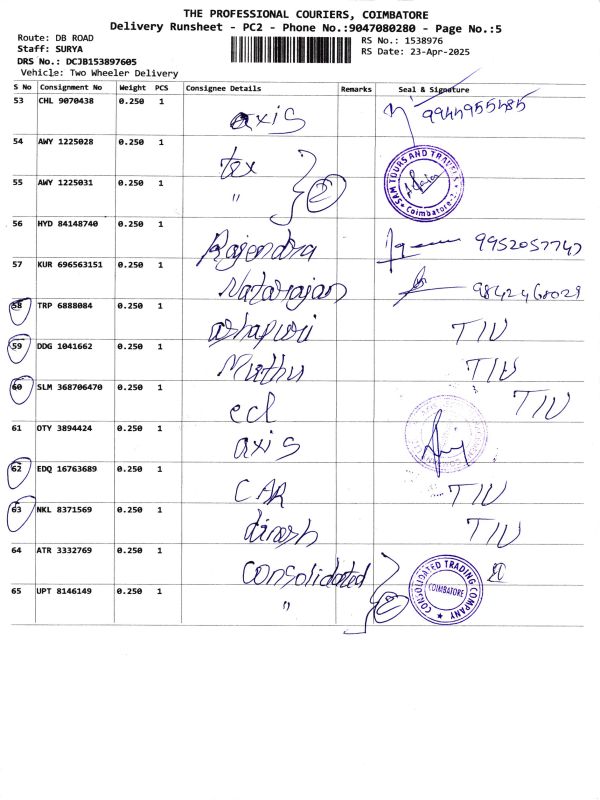 THE PROFESSIONAL COURIERS, COIMBATORE
Delivery Runsheet - PC2 - Phone No.:9047080280 - Page No.:5
Route: DB ROAD
Staff: SURYA
DRS No.: DCJB153897605
Vehicle: Two Wheeler Delivery
RS No.: 1538976
RS Date: 23-Apr-2025
S No Consignment No Weight PCS Consignee Details Remarks Seal & Signature
53 CHL 9070438 0.250 1 axis 9944955485
54 AWY 1225028 0.250 1 tex
SAM TOURS AND TRAVELS Coimbatore-2
55 AWY 1225031 0.250 1 " 2
56 HYD 84148740 0.250 1 Rajendra 9952057747
57 KUR 696563151 0.250 1 Natarajan 9842468029
58 TRP 6888084 0.250 1 ashapuri TIU
59 DDG 1041662 0.250 1 Muthu TIU
60 SLM 368706470 0.250 1 ecl TIU
61 OTY 3894424 0.250 1 axis
62 EDQ 16763689 0.250 1 CAR TIU
63 NKL 8371569 0.250 1 dinesh TIU
64 ATR 3332769 0.250 1 Consolidated
CONSOLIDATED TRADING COMPANY COIMBATORE
65 UPT 8146149 0.250 1 " 2